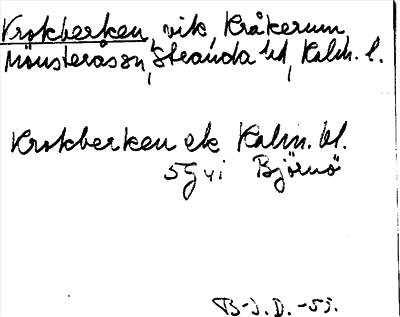 Krokberken, vik, Kråkerum,
Mönsterås sn, Stranda hd, Kalm. l.
Krokberken ek Kalm. bl.
5G vi Björnö
B-J. D. -53.